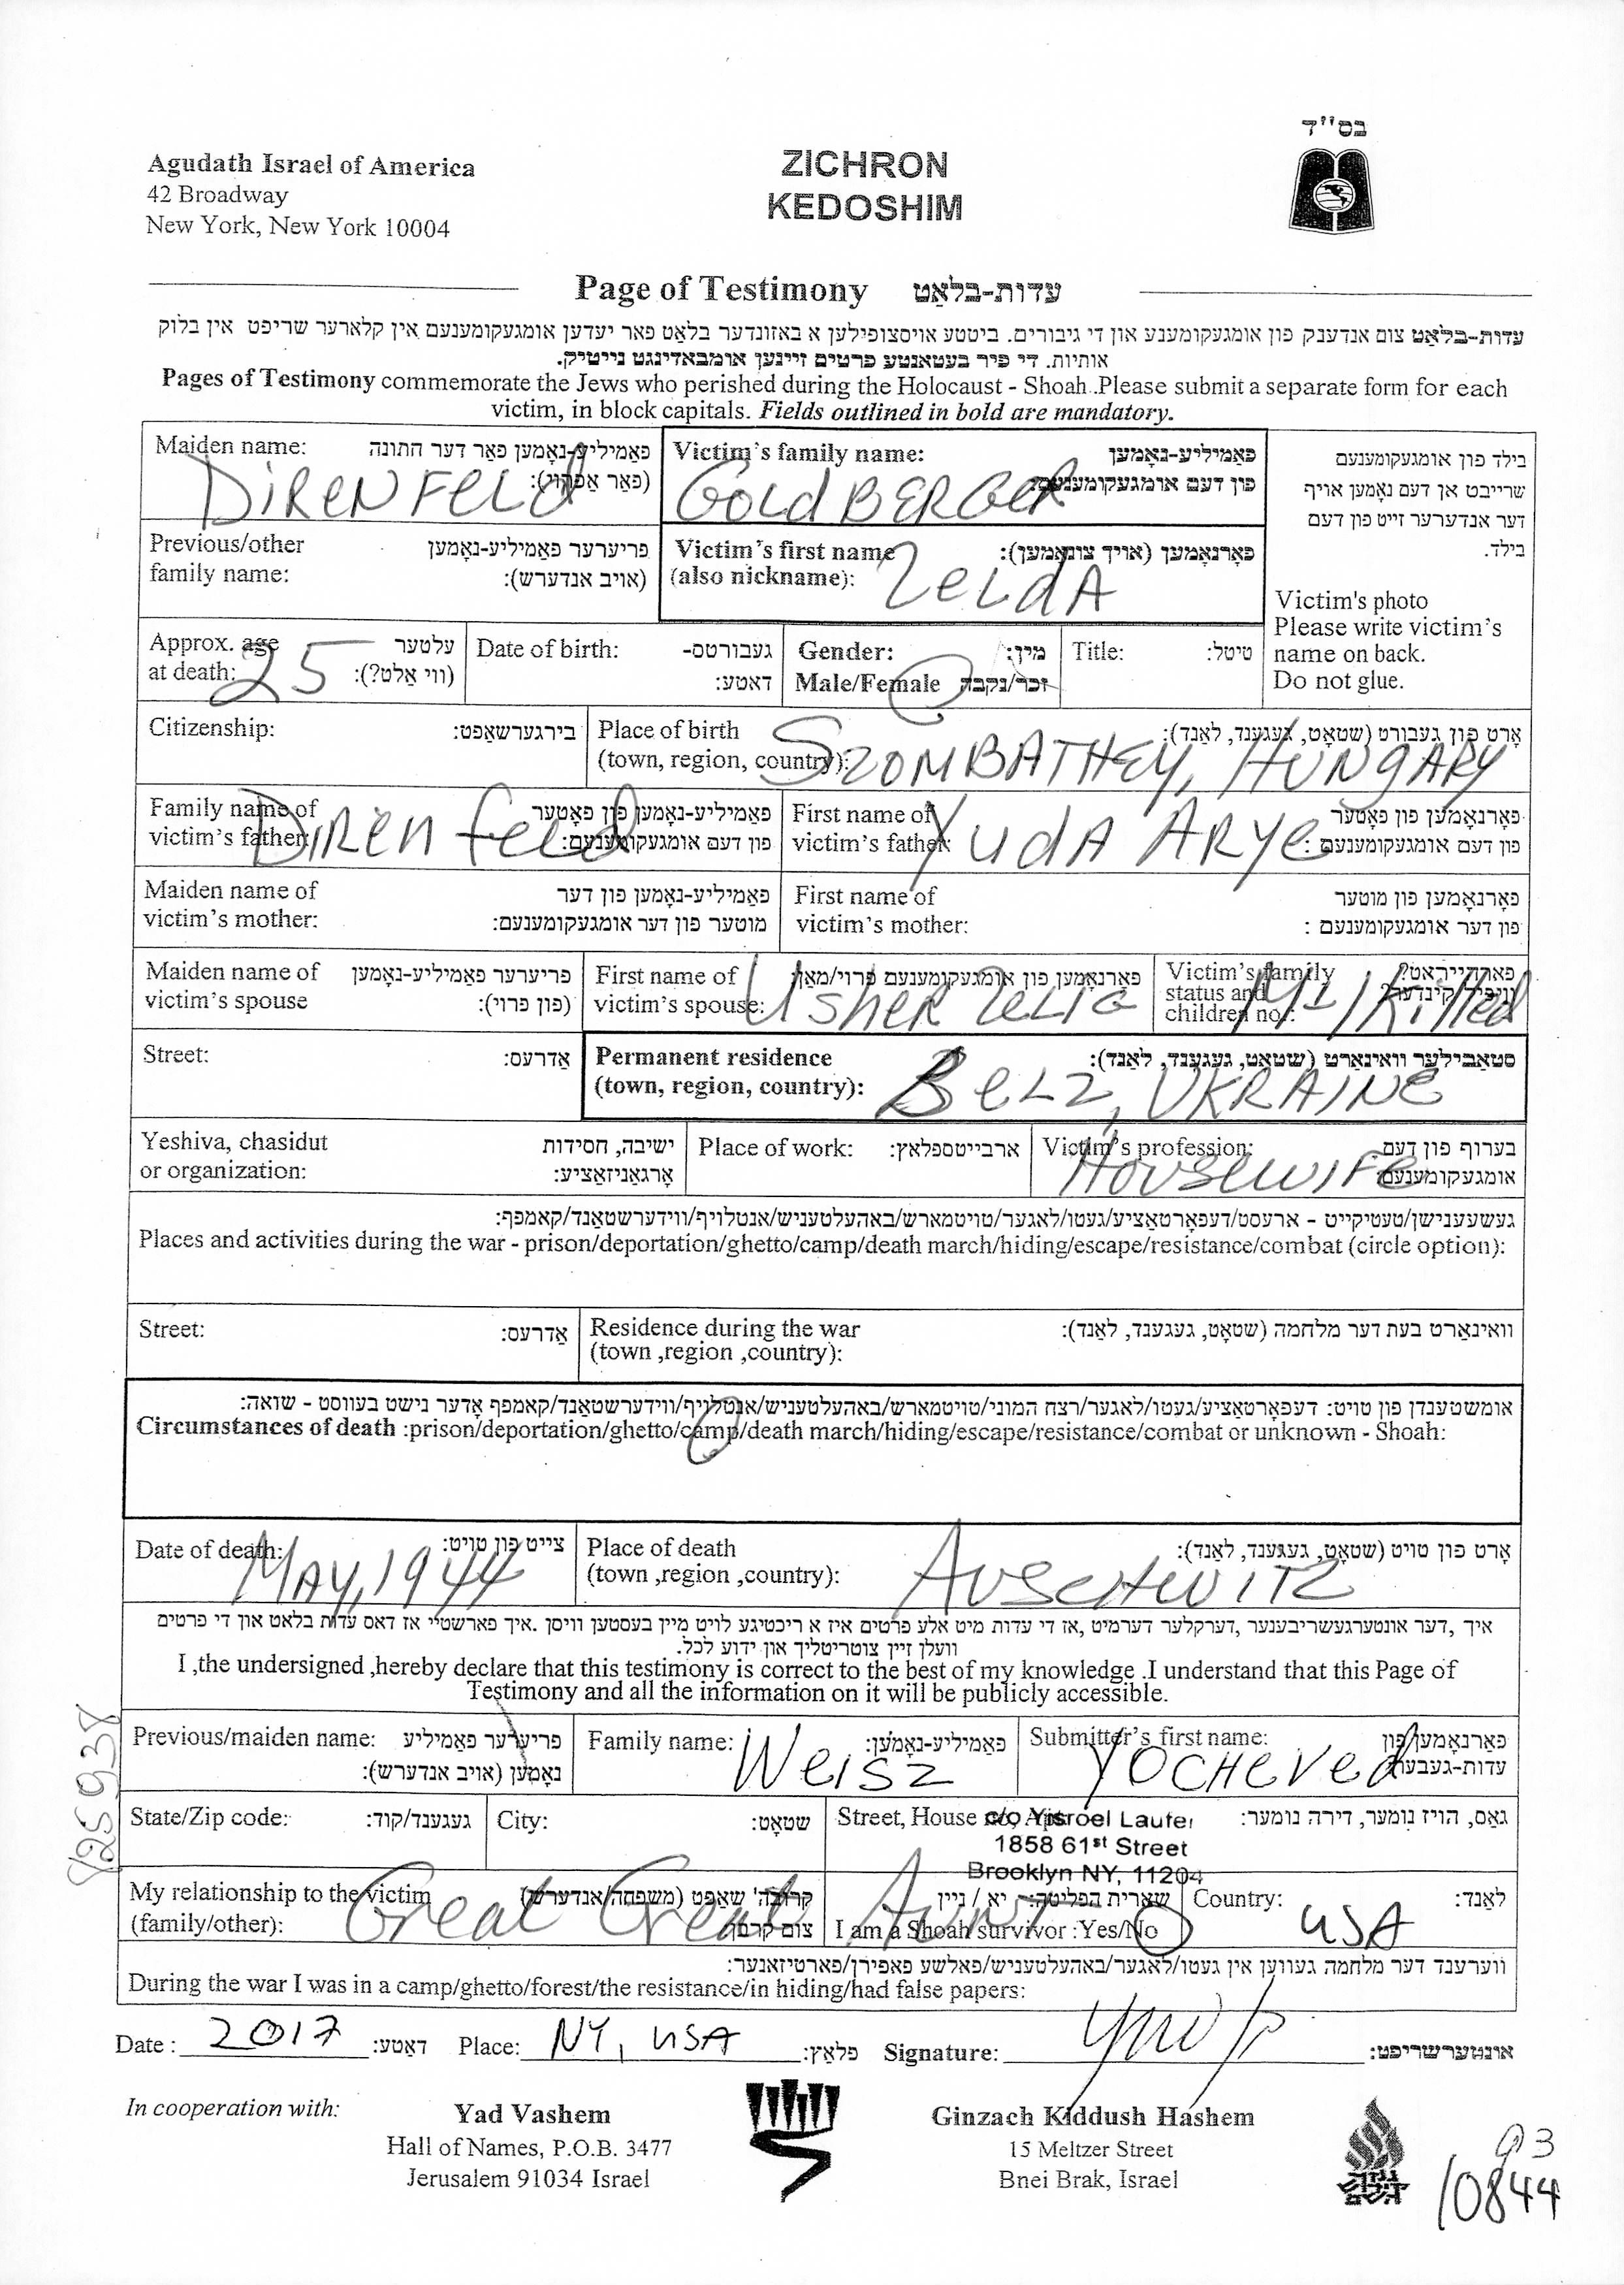 בס"ד
Agudath Israel of America
42 Broadway
New York, New York 10004
ZICHRON
KEDOSHIM
Page of Testimony עדות-בלאַט
עדות-בלאַט צום אנדענק פון אומגעקומענע און די גיבורים. ביטטע אויסצופילען א באזונדער בלאַט פאר יעדען אומגעקומענעם אין קלארער שריפט אין בלוק
אותיות. די פיר בעטאנטע פרטים זיינען אומבאדינגט נייטיק.
Pages of Testimony commemorate the Jews who perished during the Holocaust - Shoah .Please submit a separate form for each
victim, in block capitals. Fields outlined in bold are mandatory.
Maiden name: פאַמיליע-נאָמען פאַר דער חתונה
DIRENFELD
Victim's family name: פאַמיליע-נאָמען
פון דעם אומגעקומענעם:
GOLDBERGER
בילד פון אומגעקומענעם
שרייבט אן דעם נאָמען אויף
דער אנדערער זייט פון דעם
בילד.
Victim's photo
Please write victim's
name on back.
Do not glue.
Previous/other פריערער פאַמיליע-נאָמען
family name: (אויב אנדערש):
Victim's first name פאָרנאָמען (אויך צונאָמען):
(also nickname): ZELDA
Approx. age עלטער
at death: 25 (ווי אַלט?):
Date of birth: געבורטס-
דאטע:
Gender: מין:
Male/Female זכר/נקבה
Title: טיטל:
Citizenship: בירגערשאַפט:
Place of birth אָרט פון געבורט (שטאָט, געגענד, לאַנד):
(town, region, country): SZOMBATHEY, HUNGARY
Family name of פאַמיליע-נאָמען פון פאָטער
victim's father: פון דעם אומגעקומענעם:
DIREN feld
First name of פאָרנאָמען פון פאָטער
victim's father: פון דעם אומגעקומענעם:
YUDA ARYE
Maiden name of פאַמיליע-נאָמען פון דער
victim's mother: מוטער פון דער אומגעקומענעם:
First name of פאָרנאָמען פון מוטער
victim's mother: פון דער אומגעקומענעם :
Maiden name of פריערער פאַמיליע-נאָמען
victim's spouse (פון פרוי):
First name of פאָרנאָמען פון אומגעקומענעם פרוי/מאַן:
victim's spouse: USHER ZELIG
Victim's family פארהייראט?
status and וויפיל קינדער?
children no.: M 1 / Killed
Street: אַדרעס:
Permanent residence סטאַבילער וואוינאָרט (שטאָט, געגענד, לאַנד):
(town, region, country): BELZ, UKRAINE
Yeshiva, chasidut ישיבה, חסידות
or organization: אָרגאַניזאַציע:
Place of work: ארבייטספלאַץ:
Victim's profession: בערוף פון דעם
אומגעקומענעם
HOUSEWIFE
געשעענישן/טעטיקייט - ארעסט/דעפאָרטאַציע/געטו/לאגער/טויטמארש/באהעלטעניש/אנטלויף/ווידערשטאַנד/קאמפף:
Places and activities during the war - prison/deportation/ghetto/camp/death march/hiding/escape/resistance/combat (circle option):
Street: אַדרעס:
Residence during the war וואוינאָרט בעת דער מלחמה (שטאָט, געגענד, לאַנד):
(town ,region ,country):
אומשטענדן פון טויט: דעפאָרטאַציע/געטו/לאגער/רצח המוני/טויטמארש/באהעלטעניש/אנטלויף/ווידערשטאַנד/קאמפף אָדער נישט בעוווסט - שואה:
Circumstances of death :prison/deportation/ghetto/camp/death march/hiding/escape/resistance/combat or unknown - Shoah:
Date of death: צייט פון טויט:
MAY, 1944
Place of death אָרט פון טויט (שטאָט, געגענד, לאַנד):
(town ,region ,country): AUSCHWITZ
איך ,דער אונטערגעשריבענער ,דערקלער דערמיט ,אז די עדות מיט אלע פרטים איז א ריכטיגע לויט מיין בעסטען וויסן .איך פארשטיי אז דאס עדות בלאט און די פרטים
וועלן זיין צוטריטליך און ידוע לכל.
I ,the undersigned ,hereby declare that this testimony is correct to the best of my knowledge .I understand that this Page of
Testimony and all the information on it will be publicly accessible.
825938
Previous/maiden name: פריערער פאַמיליע
נאָמען (אויב אנדערש):
Family name: פאַמיליע-נאָמען:
Weisz
Submitter's first name: פאָרנאָמען פון
עדות-געבער:
YOCHEVED
State/Zip code: געגענד/קוד:
City: שטאָט:
Street, House no, Apt: גאַס, הויז נומער, דירה נומער:
c/o Yisroel Laufer
1858 61st Street
Brooklyn NY, 11204
My relationship to the victim קרובה' שאַפט (משפחה/אנדערש)
(family/other): צום קרבן
Great Great AUNT
שארית הפליטה:- יא / ניין
I am a Shoah survivor :Yes/No
Country: לאַנד:
USA
ווערענד דער מלחמה געווען אין געטו/לאגער/באהעלטעניש/פאלשע פאפירן/פארטיזאנער:
During the war I was in a camp/ghetto/forest/the resistance/in hiding/had false papers:
Date : 2017 דאַטע: Place: NY, USA פלאַץ: Signature: אונטערשריפט:
In cooperation with:
Yad Vashem
Hall of Names, P.O.B. 3477
Jerusalem 91034 Israel
Ginzach Kiddush Hashem
15 Meltzer Street
Bnei Brak, Israel
93
10844